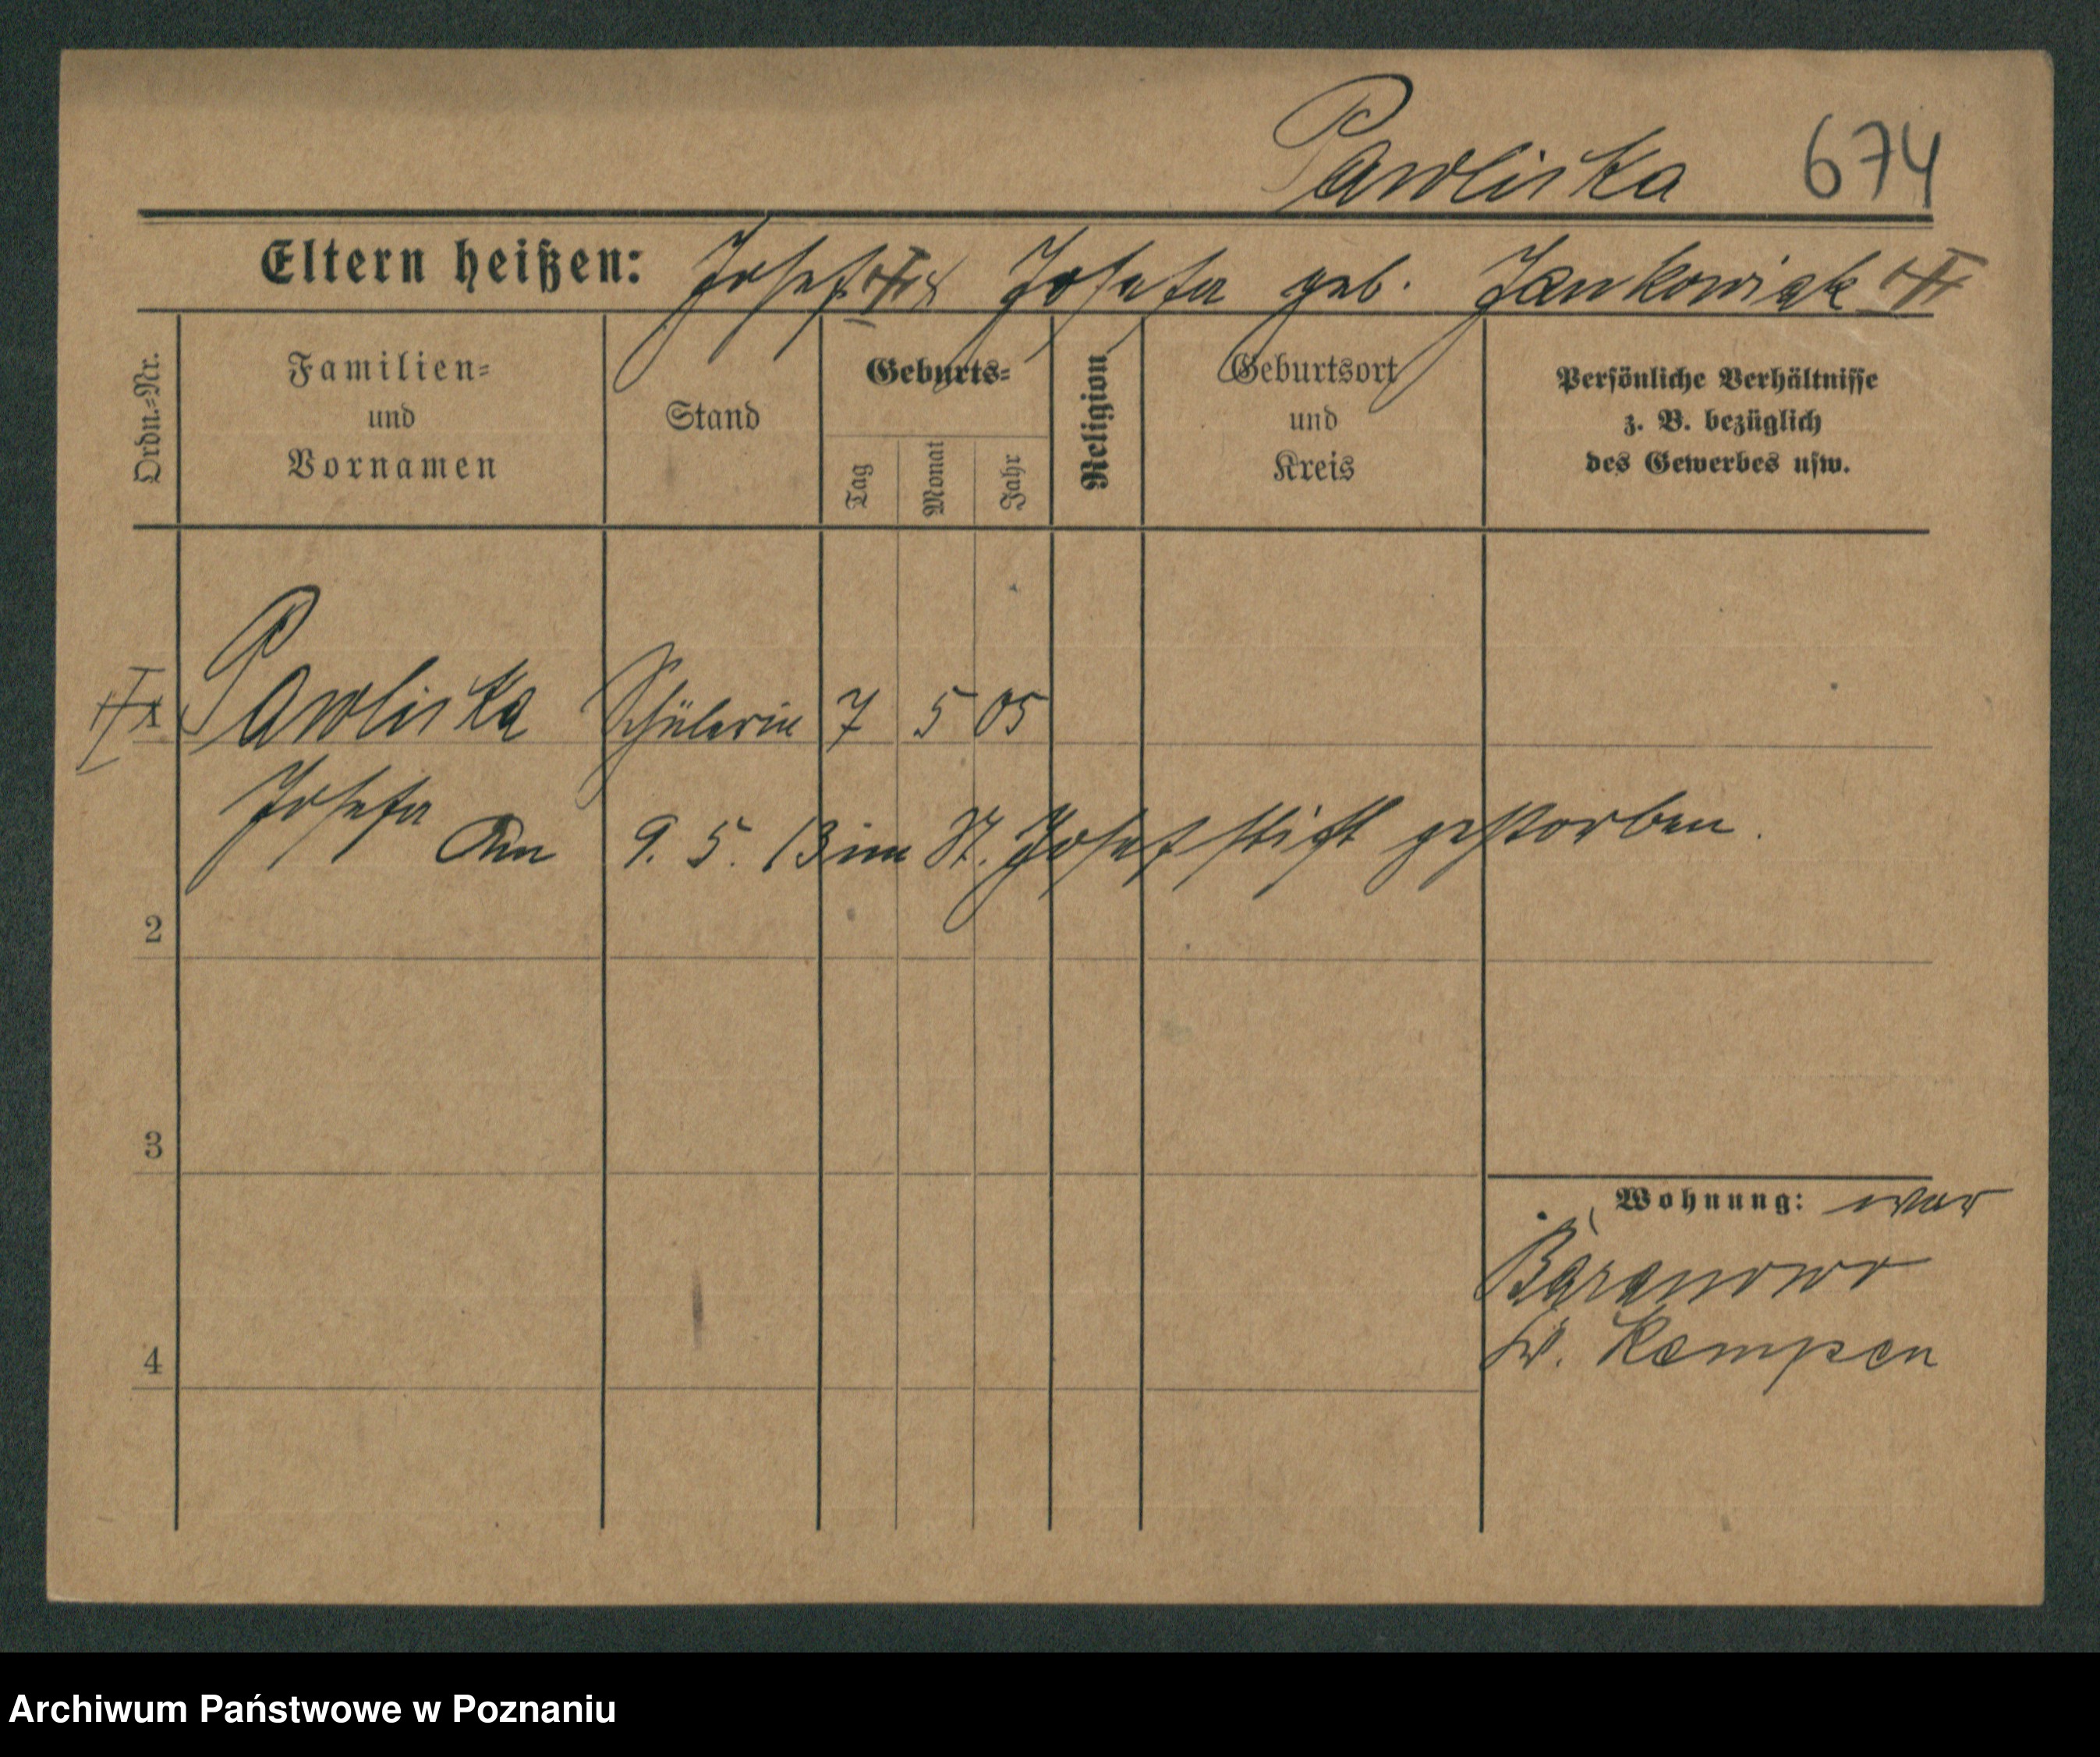 Pawliska 674
Eltern heißen: Josef u. Josefa geb. Jankowiak
Ordn.=Nr.
Familien=
und
Vornamen
Stand
Geburts=
Tag
Monat
Jahr
Religion
Geburtsort
und
Kreis
Persönliche Verhältnisse
z. B. bezüglich
des Gewerbes usw.
1 Pawliska Schülerin 7 5 05
Josefa
Am 9. 5. 13 im St. Josefstift gestorben.
2
3
Wohnung: war
Baranowo
Kempen
4
Archiwum Państwowe w Poznaniu